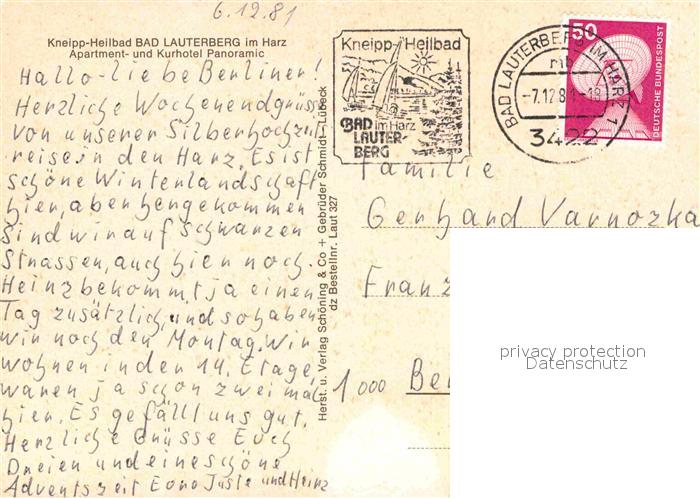 6.12.81
Kneipp-Heilbad BAD LAUTERBERG im Harz
Apartment- und Kurhotel Panoramic
Hallo-liebe Berliner!
Herzliche Wochenendgrüsse
von unserer Silberhochzeits
reise in den Harz. Es ist
schöne Winterlandschaft
hier, aber hergekommen
sind wir auf schwarzen
Strassen, auch hier noch.
Heinz bekommt ja einen
Tag zusätzlich, und so haben
wir noch den Montag. Wir
wohnen in der 14. Etage,
waren ja schon zweimal
hier. Es gefällt uns gut.
Herzliche Grüsse Euch
Dreien und eine schöne
Adventszeit Eure Juste und Heinz
Herst. u. Verlag Schöning & Co + Gebrüder Schmidt - Lübeck
dz Bestellnr. Laut 327
Kneipp-Heilbad
BAD im Harz
LAUTER-
BERG
BAD LAUTERBERG IM HARZ 1
mb
-7.12.81-18
3422
50
DEUTSCHE BUNDESPOST
Familie
Gerhard Varnozka
Franz
1000 Be
privacy protection
Datenschutz